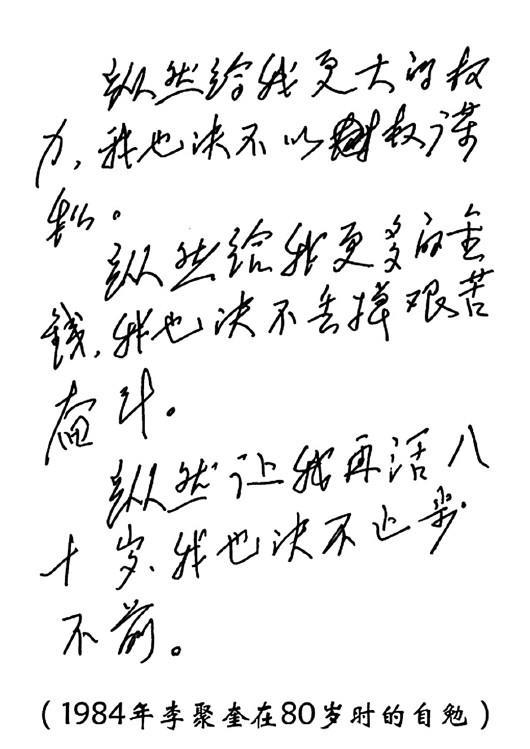 纵然给我更大的权
力，我也决不以权谋
私。
纵然给我更多的金
钱，我也决不丢掉艰苦
奋斗。
纵然让我再活八
十岁，我也决不止步
不前。
（1984年李聚奎在80岁时的自勉）